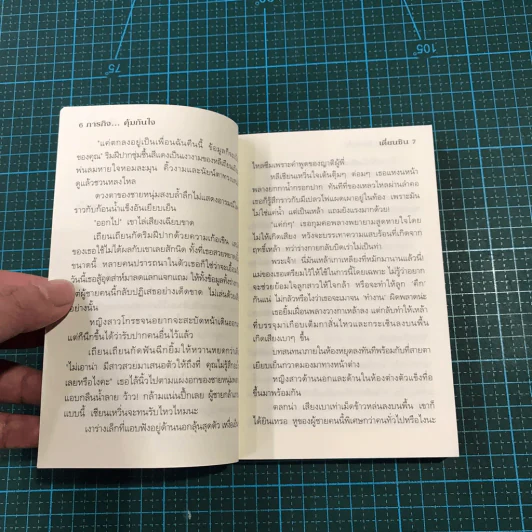 75
105
6 ภารกิจ... คุ้มกันใจ
"แค่ตกลงอยู่เป็นเพื่อนฉันคืนนี้ ข้อมูล
ของคุณ" ริมฝีปากชุ่มชื้นสีแดงเป็นเงางามของหลี
พ่นลมหายใจหอมละมุน คิ้วงามและนัยน์ตา
ดูแล้วชวนหลงใหล
ดวงตาของชายหนุ่มสงบล้ำลึกไม่แสดงอารมณ์
ราวกับก้อนน้ำแข็งอันเยียบเย็น
"ออกไป" เขาไล่เสียงเฉียบขาด
เถียนเถียนกัดริมฝีปากด้วยความเก้อเขิน
ของเธอใช้ไม่ได้ผลกับเขาเลยสักนิด ทั้งที่เธอสวย
ขนาดนี้ หลายคนปรารถนาในตัวเธอก็ใช่ว่าจะ
วันนี้เธออุตส่าห์มาสดแลกแจกแถม ให้ทั้งข้อมูลทั้ง
ผู้ชายคนนี้กลับปฏิเสธอย่างเด็ดขาด ไม่เล่นด้วย
อย่างนั้น
หญิงสาวโกรธจนอยากจะสะบัดหน้าเดินออก
แต่ก็นึกขึ้นได้ว่ารับปากคนอื่นไว้แล้ว
เถียนเถียนกัดฟันฉีกยิ้มให้หวานหยดกว่า
"ไม่เอาน่า มีสาวสวยมาเสนอตัวให้ถึงที่ คุณไม่รู้สึก
เลยหรือไงคะ" เธอไล้นิ้วไปตามแผงอกของชายหนุ่ม
แอบกลืนน้ำลาย ว้าว! กล้ามแน่นปึ้กเลย ผู้ชาย
แบบนี้ เซียนเหวินจะทนรับไหวไหมนะ
เงาร่างเล็กที่แอบฟังอยู่ด้านนอกลุ้นสุดตัว
เตี่ยนซิน 7
ไหลซึมเพราะคำพูดของญาติผู้พี่
หลีเซียนเหวินใจเต้นตุ้มๆ ต่อมๆ เธอแหงนหน้า
พลางยกกาน้ำกรอกปาก ทันทีที่ของเหลวไหลผ่านลำคอ
เธอก็รู้สึกราวกับมีเปลวไฟแผดเผาอยู่ในท้อง เพราะมัน
ไม่ใช่แค่น้ำ แต่เป็นเหล้า แถมยังแรงมากด้วย!
"แค่กๆ" เธอกุมคอพลางพยายามสูดหายใจโดย
ไม่ให้เกิดเสียง หวังจะบรรเทาความแสบร้อนที่เกิดจาก
ฤทธิ์เหล้า ทว่าร่างกายกลับบิดเร่าไม่เป็นท่า
พระเจ้า นี่มันเหล้าเกาเหลียงที่หมักมานานแล้วนี่!
แม่ของเธอเตรียมไว้ให้ใช้ในการนี้โดยเฉพาะ ไม่รู้ว่าอยาก
จะช่วยย้อมใจลูกสาวให้ใจกล้า หรือจะทำให้ลูก 'ดึก'
กันแน่ ไม่กลัวหรือไงว่าเธอจะเมาจน 'ทำงาน' ผิดพลาดน่ะ
เธอยิ้มเฝื่อนพลางวางกาเหล้าลง แต่กลับทำให้เหล้า
ที่บรรจุมาเกือบเต็มกาลั่นไหวและกระเซ็นลงบนพื้น
เกิดเสียงเบาๆ ขึ้น
บทสนทนาภายในห้องหยุดลงทันทีพร้อมกับที่สายตา
เยียบเย็นกวาดมองมาทางหน้าต่าง
หญิงสาวด้านนอกและด้านในห้องต่างตัวแข็งทื่อ
ขึ้นมาพร้อมกัน
ตลกน่า เสียงเบาเท่าเม็ดข้าวหล่นลงบนพื้น เขาก็
ได้ยินเหรอ หูของผู้ชายคนนี้พิเศษกว่าคนทั่วไปหรือไงนะ